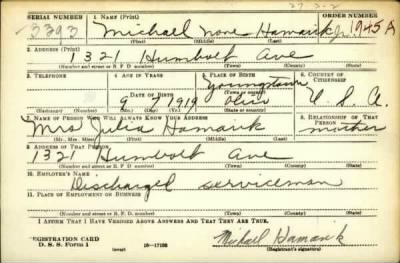 27 3-2
SERIAL NUMBER 1. NAME (Print) ORDER NUMBER
3393 Michael None Hamarik Jr. 1945 A
(First) (Middle) (Last)
2. ADDRESS (Print)
1321 Humbolt Ave
(Number and street or R. F. D. number) (Town) (County) (State)
3. TELEPHONE 4. AGE IN YEARS 5. PLACE OF BIRTH 6. COUNTRY OF CITIZENSHIP
Youngstown
9 7 1919 Ohio U. S. A.
7. NAME OF PERSON WHO WILL ALWAYS KNOW YOUR ADDRESS 8. RELATIONSHIP OF THAT PERSON
Mrs Julia Hamarik mother
(Mr., Mrs., Miss) (First) (Middle) (Last)
9. ADDRESS OF THAT PERSON
1321 Humbolt Ave
(Number and street or R. F. D. number) (Town) (County) (State)
10. EMPLOYER'S NAME
Discharged serviceman
11. PLACE OF EMPLOYMENT OR BUSINESS
(Number and street or R. F. D. number) (Town) (County) (State)
I AFFIRM THAT I HAVE VERIFIED ABOVE ANSWERS AND THAT THEY ARE TRUE.
REGISTRATION CARD
D. S. S. FORM 1 (over) 16—17105 Michael Hamarik
(Registrant's signature)